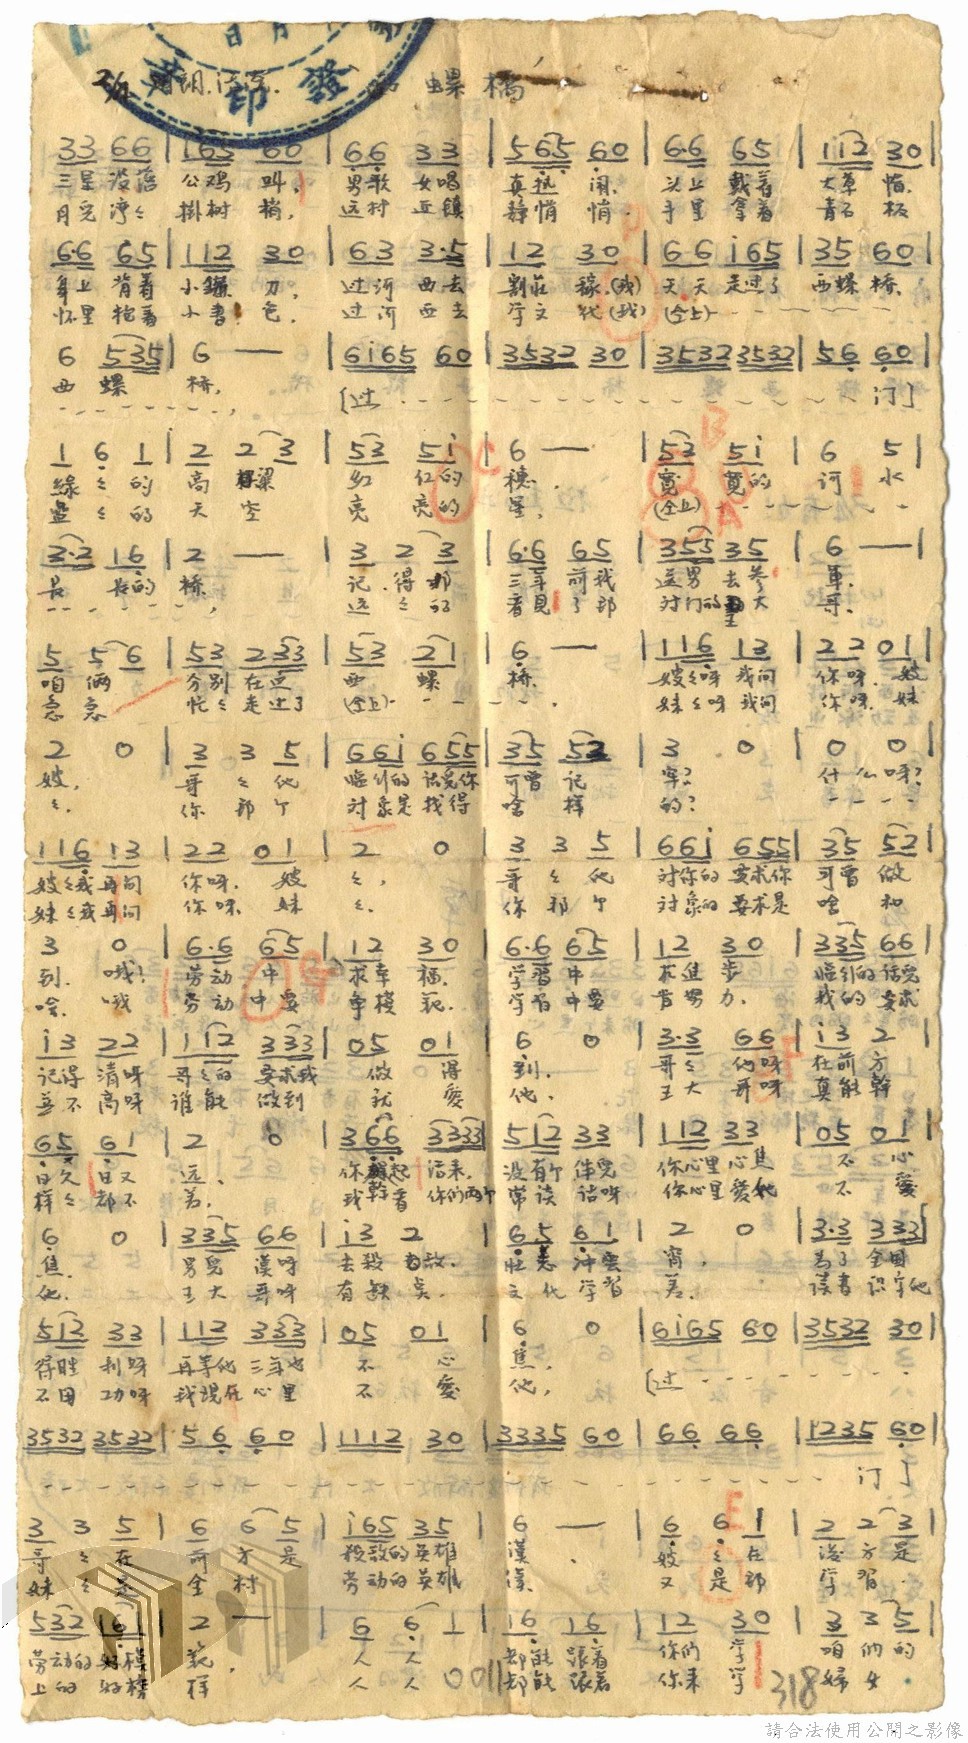 日 月
證 印
螺 橋
33 66 | 165 60 | 66 33 | 565 60 | 6·6 65 | 112 30 |
三星 没落 公鸡 叫, 男歌 女唱 真热 闹. 头上 戴着 大草 帽.
月亮 湾々 掛树 梢, 远村 近镇 静悄 悄. 手里 拿着 青石 板
6·6 65 | 112 30 | 63 3·5 | 12 30 | 66 i65 | 35 60 |
身上 背着 小鐮 刀, 过河 西去 割莊 稼.(我) 天天 走过了 西螺 橋.
怀里 抱着 小書 包. 过河 西去 学文 化(我) (仝上)
6 535 | 6 — | 6i65 60 | 3532 30 | 3532 3532 | 56 60 |
西 螺 橋, [过 门]
1 6 1 | 2 2 3 | 53 5i | 6 — | 53 5i | 6 5
綠 々 的 高 粱 红 红的 穗. 寬 寬的 河 水
藍 々 的 天 空 亮 亮的 星, (仝上)
3·2 16 | 2 — | 3 2 3 | 6·6 65 | 355 35 | 6 — |
長 長的 橋. 记 得 那 三年 前我 送男 去參 軍.
远 々 的 看見 了那 对门的 王大 哥.
5 5 6 | 53 233 | 53 21 | 6 — | 116 13 | 22 01 |
咱 俩 分别 在这 西 螺 橋. 嫂々呀 我问 你呀. 嫂
急 急 忙々 走过了 (仝上) 妹々呀 我问 你呀. 妹
2 0 | 3 3 5 | 66i 655 | 35 53 | 3 0 | 0 0 |
嫂, 哥 々 他 臨别的 话兒你 可曾 记 牢? 什么呀?
々. 你 那 个 对象是 找得 啥 样 的?
116 13 | 22 01 | 2 0 | 3 3 5 | 66i 655 | 35 53 |
嫂々我 再问 你呀. 嫂 々, 哥 々 他 对你的 要求你 可曾 做
妹々我 再问 你呀. 妹 々. 你 那 个 对象的 要求是 啥 和
3 0 | 6·6 65 | 12 30 | 6·6 65 | 12 30 | 335 66
到. 哦! 劳动 中 求幸 福. 学習 中 求進 步 臨别的 话兒
啥. 哦 劳动 中要 争模 範. 学習 中要 肯努 力. 我的 要求
i3 22 | 112 333 | 05 01 | 6 0 | 3·3 66 | i3 2
记得 清呀 哥々的 要求我 做 得 到. 哥々 他呀 在前 方
并不 高呀 谁能 做到 就 愛 他. 王大 哥呀 真能 幹
65 61 | 2 0 | 366 3333 | 512 33 | 112 33 | 05 01 |
日久 日又 远. 你 起 信来, 没有个 伴兒 你心里 心焦 不 心
样々 都不 差, 我 看 你们俩个 常談 话呀 你心里 愛她 不 愛
6 0 | 335 66 | i3 2 | 65 61 | 2 0 | 3·3 333
焦. 男兒 漢呀 去殺 敌. 壮志 冲雲 霄, 为了 全国
他. 王大 哥呀 有缺 点. 文化 学習 差. 读書 识字他
513 33 | 112 333 | 05 01 | 6 0 | 6i65 60 | 3532 30 |
得胜 利呀 再等他 三年也 不 心 焦, [过
不用 功呀 我现在 心里 不 愛 他,
3532 3532 | 56 60 | 1112 30 | 3335 60 | 66 66 | 1235 60 |
门]
3 3 5 | 6 6 5 | i65 35 | 6 — | 6 6 1 | 2 2 3 |
哥 々 在 前 方 是 殺敌的 英雄 漢. 嫂 々 在 後 方 是
妹 々 是 全 村 劳动的 英雄 漢. 又 是 那 学 習
532 161 | 2 — | 6 6 1 | 16 16 | 12 30 | 3 3 5 |
劳动的 好模 範, 人 人 都能 跟着 你们 学 咱 们 的
上的 好榜 样 人 人 都能 跟着 你来 学 婦 女
0011 318
請合法使用公開之影像